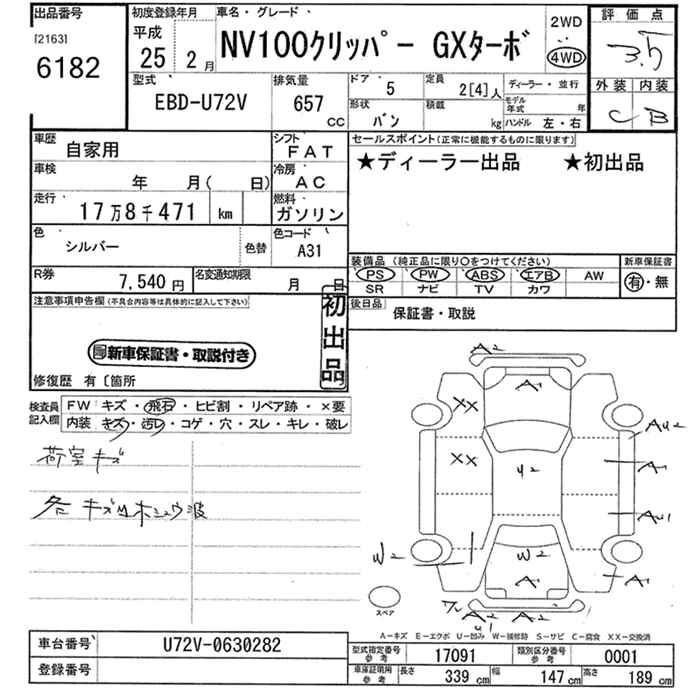 出品番号 初度登録年月 車名・グレード 評価点
[2163] 平成 2WD
6182 25 2月 NV100クリッパー GXターボ 4WD 3.5
型式 排気量 ドア 5 定員 2[4]人 ディーラー・並行 外装 内装
EBD-U72V 657 cc 形状 バン 積載 kg モデル年式 年 C B
ハンドル 左・右
車歴 自家用 シフト FAT セールスポイント(正常に機能するものに限ります)
車検 年 月( 日) 冷房 AC ★ディーラー出品 ★初出品
走行 17万8千471 km 燃料 ガソリン
色 シルバー 色替 色コード A31
装備品(純正品に限り○をつけてください) 新車保証書
R券 7,540円 名変通知期限 月 日 PS PW ABS エアB AW 有・無
SR ナビ TV カワ
注意事項申告欄(不具合内容等は具体的に記入して下さい) 初出品 後日品 保証書・取説
新車保証書・取説付き
修復歴 有〔箇所
検査員記入欄 FW キズ・飛石・ヒビ割・リペア跡・×要
内装 キズ・汚レ・コゲ・穴・スレ・キレ・破レ
荷室キズ
各キズ凹ホシュウ波
A2
A1
XX
AU2
XX
U2
A1
AU1
W2
W2
A1
A1
A2
U1
スペア
A−キズ E−エクボ U−凹み W−補修跡 S−サビ C−腐食 XX−交換済
車台番号 U72V-0630282 型式指定番号 参考 17091 類別区分番号 参考 0001
登録番号 車庫証明用 参考 長さ 339cm 幅 147cm 高さ 189cm